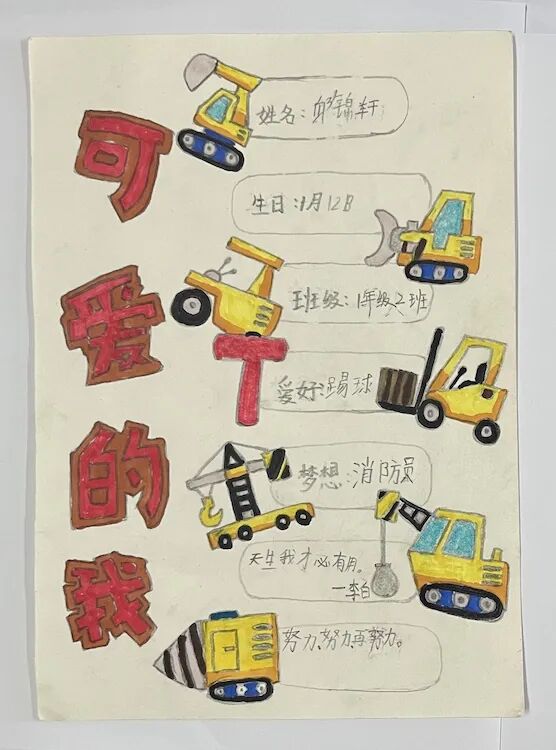 可爱的我
姓名:锦轩
生日:1月12日
班级:1年级2班
爱好:踢球
梦想:消防员
天生我才必有用。
—李白
努力、努力、再努力。